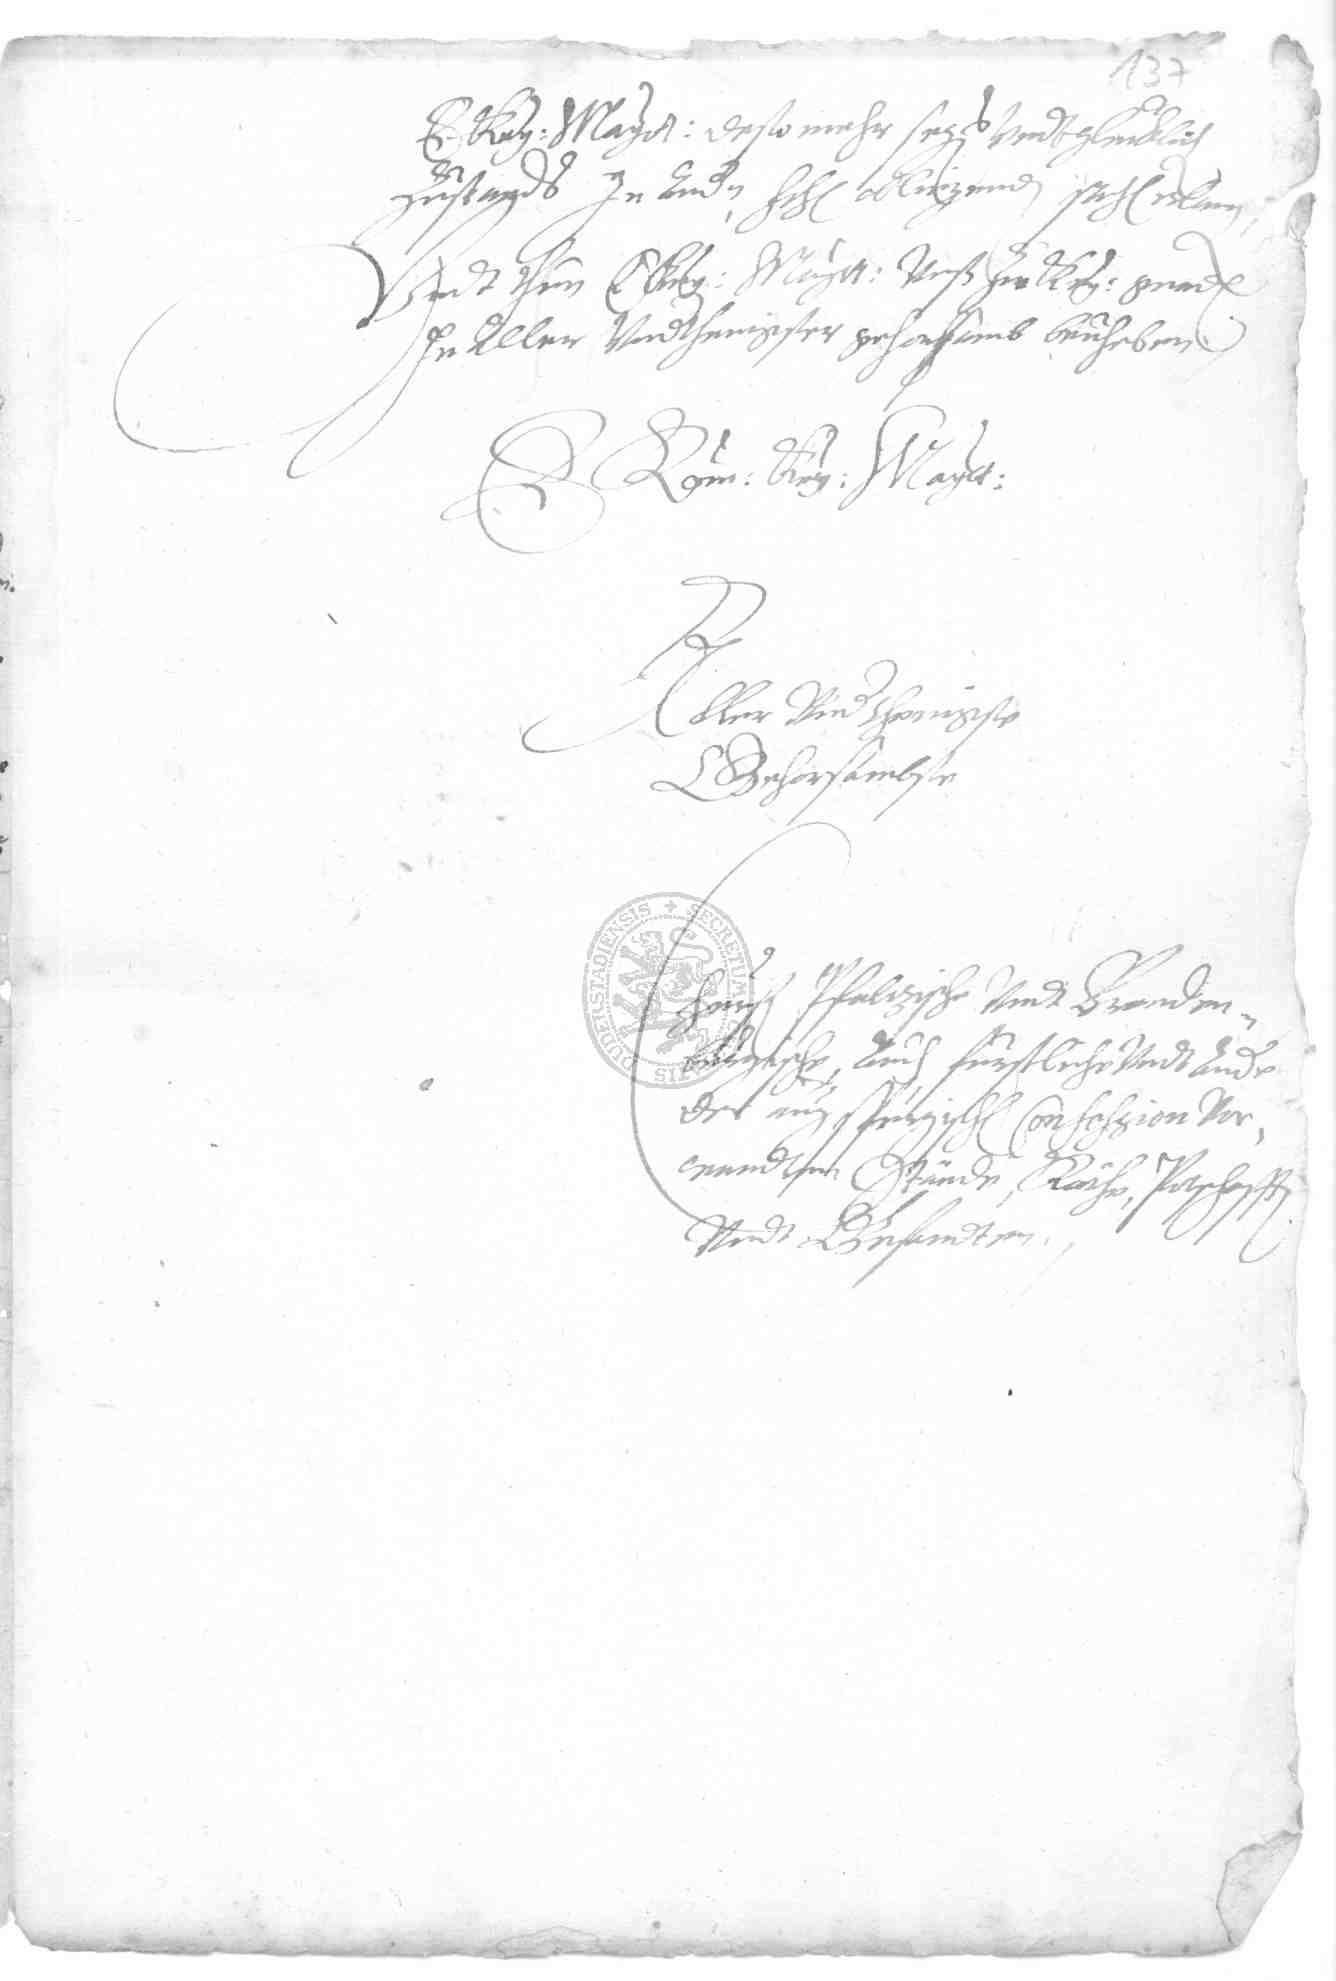 137
E Kay: Mayt: desto mehr segs vndt glücklich
Zustands In And hohe obligende sach
Vndt thun E Kay: Mayt: Vnß Zu Key: gnad
In Aller Vndthenigster gehorsamb beuhelen
E Röm: Key: Mayt:
Aller Vndthenigste
Gehorsambste
Churf Pfalzische Vndt Branden-
burgische, Auch Fürstliche Vndt Andere
der augspurgische Confession Ver-
wandten Stände, Räthe, Potschafft
Vndt Gesandten.
SECRETUM
DUDERSTADIENSIS